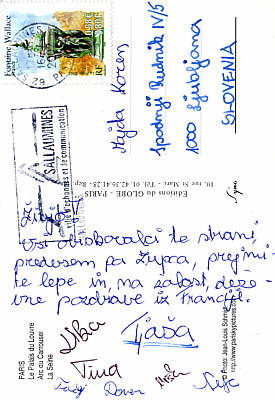 Fontaine Wallace
RF
SALLAUMINES
ville d'échanges et de communication
Majda Koren
Spodnji Rudnik IV/5
1000 Ljubljana
SLOVENIA
Editions du GLOBE - PARIS
10, rue St Marc - Tél. 01.42.36.41.28 - Rep.
Živjo!
Vsi oboževalci te strani,
predvsem pa Župca, prejmi-
te lepe in, na žalost, deže-
vne pozdrave iz Francije.
Nika
Tjaša
Tina
PARIS
Le Palais du Louvre
Arc du Carrousel
La Seine
© Photo: Jean-Louis Schmidt